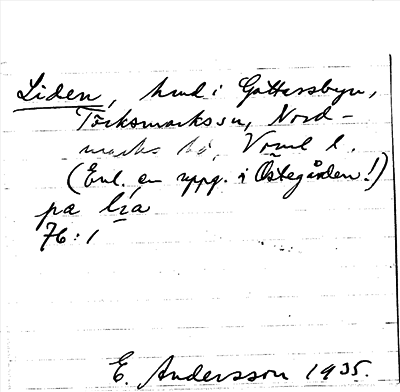 Liden, hmd i Gottarsbyn,
Töcksmarks sn, Nord-
marks hd, Vrml l.
(Enl. en uppg. i Östegården!)
pæ lia
76:1
E. Andersson 1935.